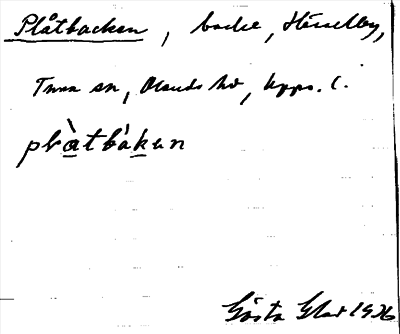 Plåtbacken, backe, Hässelby,
Tuna sn, Olands hd, Upps. l.
plàtbàkən
Gösta Glad 1926